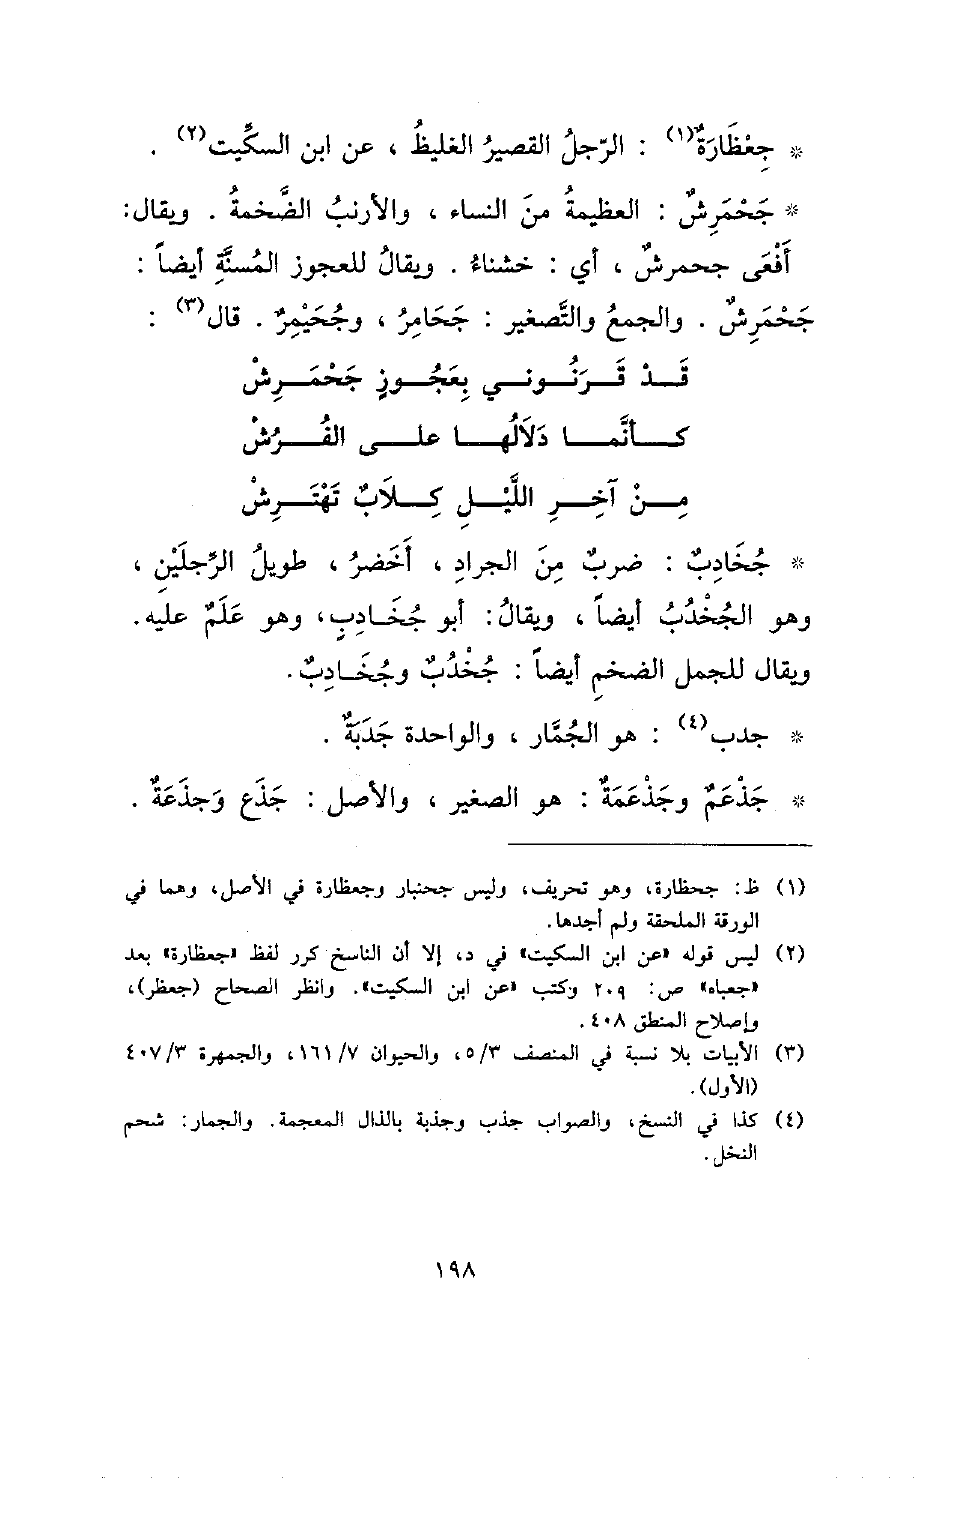 * جِعْظَارَةٌ(١) : الرّجلُ القصيرُ الغليظُ ، عن ابن السكِّيت(٢) .
* جَحْمَرِشٌ : العظيمةُ منَ النساء ، والأرنبُ الضَّخمةُ . ويقال:
أَفْعَى جحمرشٌ ، أي : خشناءُ . ويقالُ للعجوز المُسنَّةِ أيضاً :
جَحْمَرِشٌ . والجمعُ والتَّصغير : جَحَامِرُ ، وجُحَيْمِرٌ . قال(٣) :
قَدْ قَرَنُوني بِعَجُوزٍ جَحْمَرِشْ
كأنَّما دَلَالُها على الفُرُشْ
مِنْ آخِرِ اللَّيْلِ كِلَابٌ تَهْتَرِشْ
* جُخَادِبٌ : ضربٌ مِنَ الجرادِ ، أَخَضرُ ، طويلُ الرِّجلَيْنِ ،
وهو الجُخْدُبُ أيضاً ، ويقالُ: أبو جُخَادِبٍ، وهو عَلَمٌ عليه.
ويقال للجمل الضخمِ أيضاً : جُخْدُبٌ وجُخَادِبٌ.
* جدب(٤) : هو الجُمَّار ، والواحدة جَدَبَةٌ .
* جَذْعَمٌ وجَذْعَمَةٌ : هو الصغير ، والأصل : جَذَع وَجذَعَةٌ .
(١) ظ: جحظارة، وهو تحريف، وليس جحنبار وجعظارة في الأصل، وهما في
الورقة الملحقة ولم أجدها.
(٢) ليس قوله «عن ابن السكيت» في د، إلا أن الناسخ كرر لفظ «جعظارة» بعد
«جعباه» ص: ٢٠٩ وكتب «عن ابن السكيت». وانظر الصحاح (جعظر)،
وإصلاح المنطق ٤٠٨.
(٣) الأبيات بلا نسبة في المنصف ٥/٣، والحيوان ١٦١/٧، والجمهرة ٤٠٧/٣
(الأول).
(٤) كذا في النسخ، والصواب جذب وجذبة بالذال المعجمة. والجمار: شحم
النخل.
١٩٨